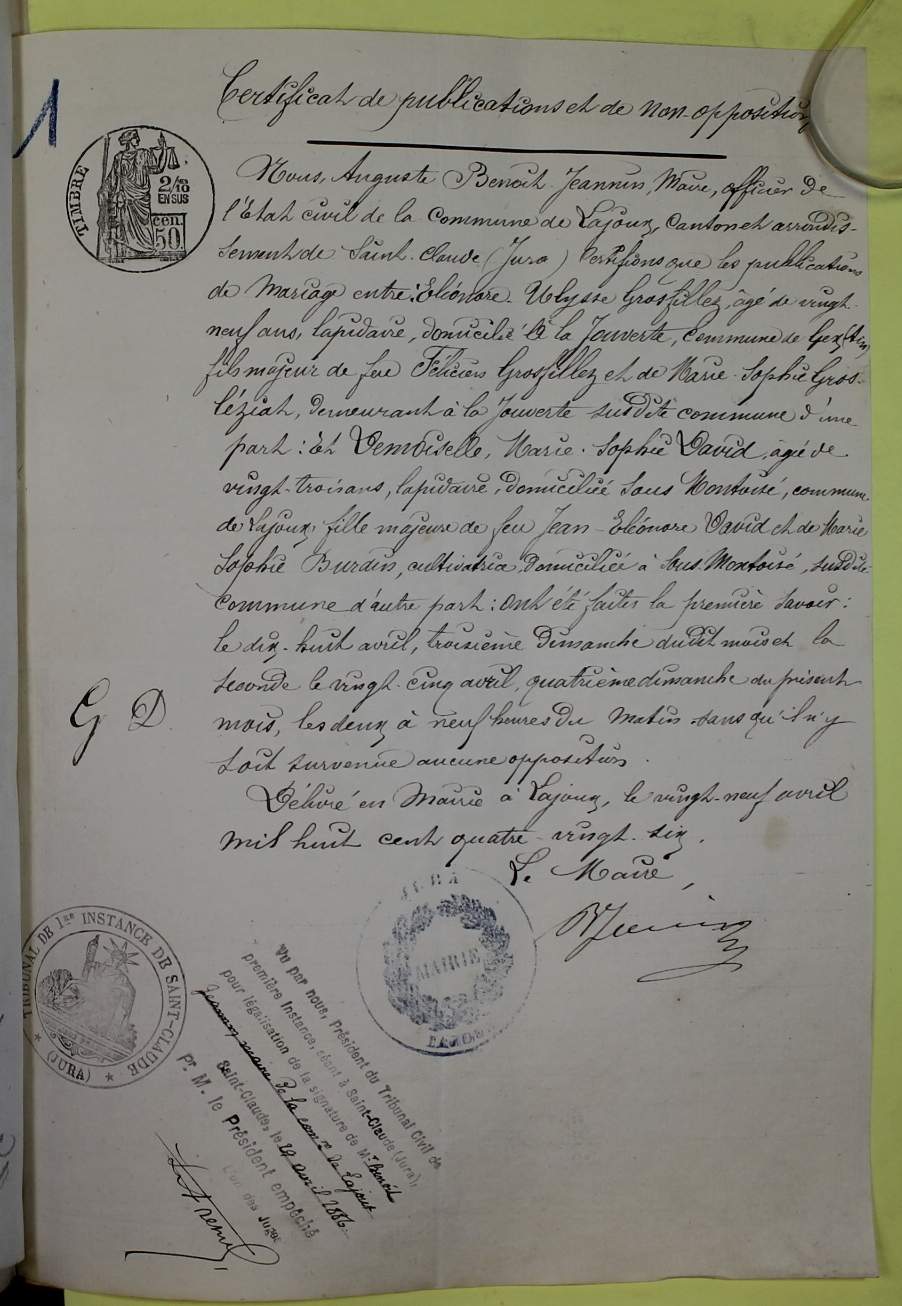 1
Certificat de publications et de non-opposition
TIMBRE
2/10
EN SUS
cen
50.
Nous, Auguste Benoit-Jeannin, Maire, officier de
l'État civil de la commune de Lajoux, Canton et arrondis-
sement de Saint-Claude (Jura) Certifions que les publications
de Mariage entre: Eléonore-Ulysse Grosfillez, âgé de vingt-
neuf ans, lapidaire, domicilié à la Jouverte, Commune de Gex (Ain)
fils majeur de feu Félicien Grosfillez et de Marie-Sophie Gros-
léziat, demeurant à la Jouverte susdite commune d'une
part: Et Demoiselle, Marie-Sophie David, âgé de
vingt-trois ans, lapidaire, domiciliée Sous Montoisé, commune
de Lajoux, fille majeure de feu Jean-Eléonore David et de Marie
Sophie Burdin, cultivatrice, domiciliée à Sous-Montoisé, susdite
commune d'autre part: ont été faites la première savoir:
le dix-huit avril, troisième dimanche dudit mois et la
seconde le vingt-cinq avril, quatrième dimanche du présent
mois, les deux à neuf heures du matin sans qu'il n'y
soit survenue aucune opposition.
G D.
Délivré en Mairie à Lajoux, le vingt-neuf avril
mil huit cent quatre-vingt-six.
Le Maire,
JURA
MAIRIE
LAJOUX
TRIBUNAL DE 1re INSTANCE DE SAINT-CLAUDE
* (JURA) *
Vu par nous, Président du Tribunal Civil de
première instance, séant à Saint-Claude (Jura),
pour légalisation de la signature de Mr Benoit
Jeannin maire de la comne de Lajoux
Saint-Claude, le 29 avril 1886.
Pr. M. le Président empêché
L'un des Juges